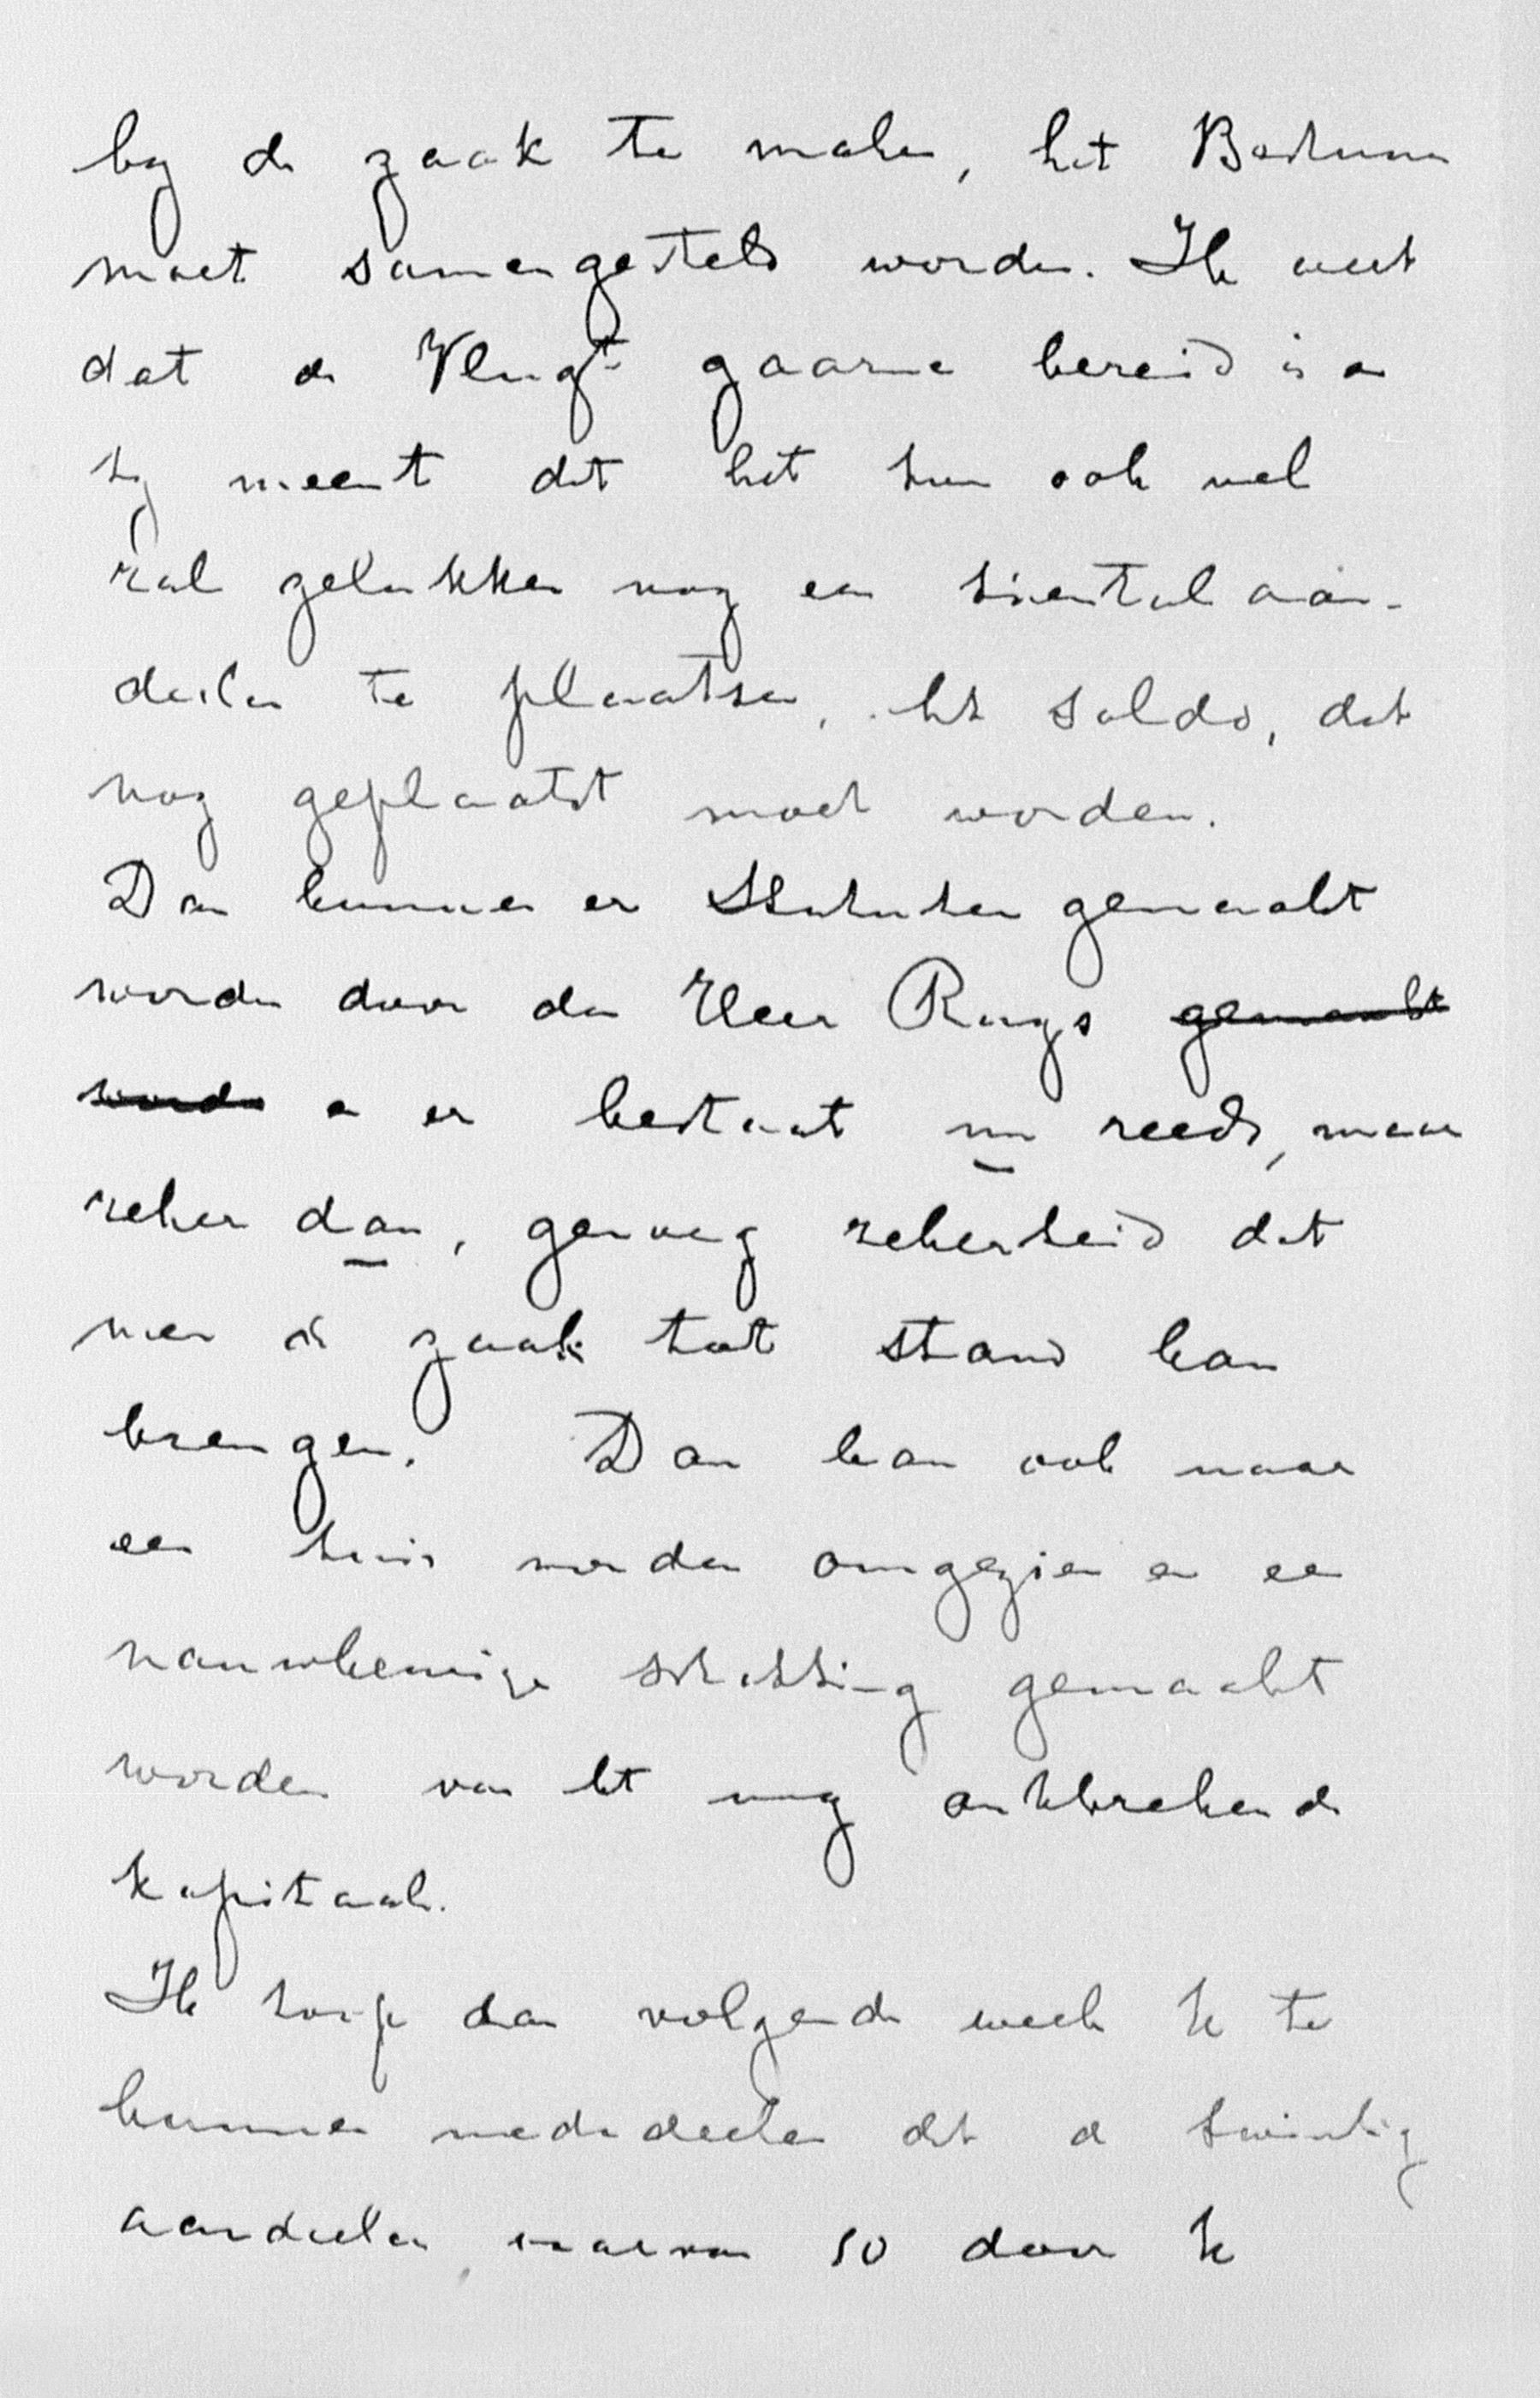 by de zaak te maken, het Bestuur
moet samengesteld worden. Ik weet
dat de Vlugt gaarne bereid is en
hy meent dat het hun ook wel
zal gelukken nog een tiental aan-
deelen te plaatsen, het saldo, dat
nog geplaatst moet worden.
Dan kunnen er Statuten gemaakt
worden door den Heer Ruys gemaakt
worden en er bestaat nu reeds, maar
zeker dan, genoeg zekerheid dat
men de zaak tot stand kan
brengen. Dan kan ook naar
een huis worden omgezien en een
nauwkeurige schatting gemaakt
worden van het nog ontbrekende
kapitaal.
Ik hoop dan volgende week U te
kunnen mededeelen dat de twintig
aandeelen, waarvan 10 door U